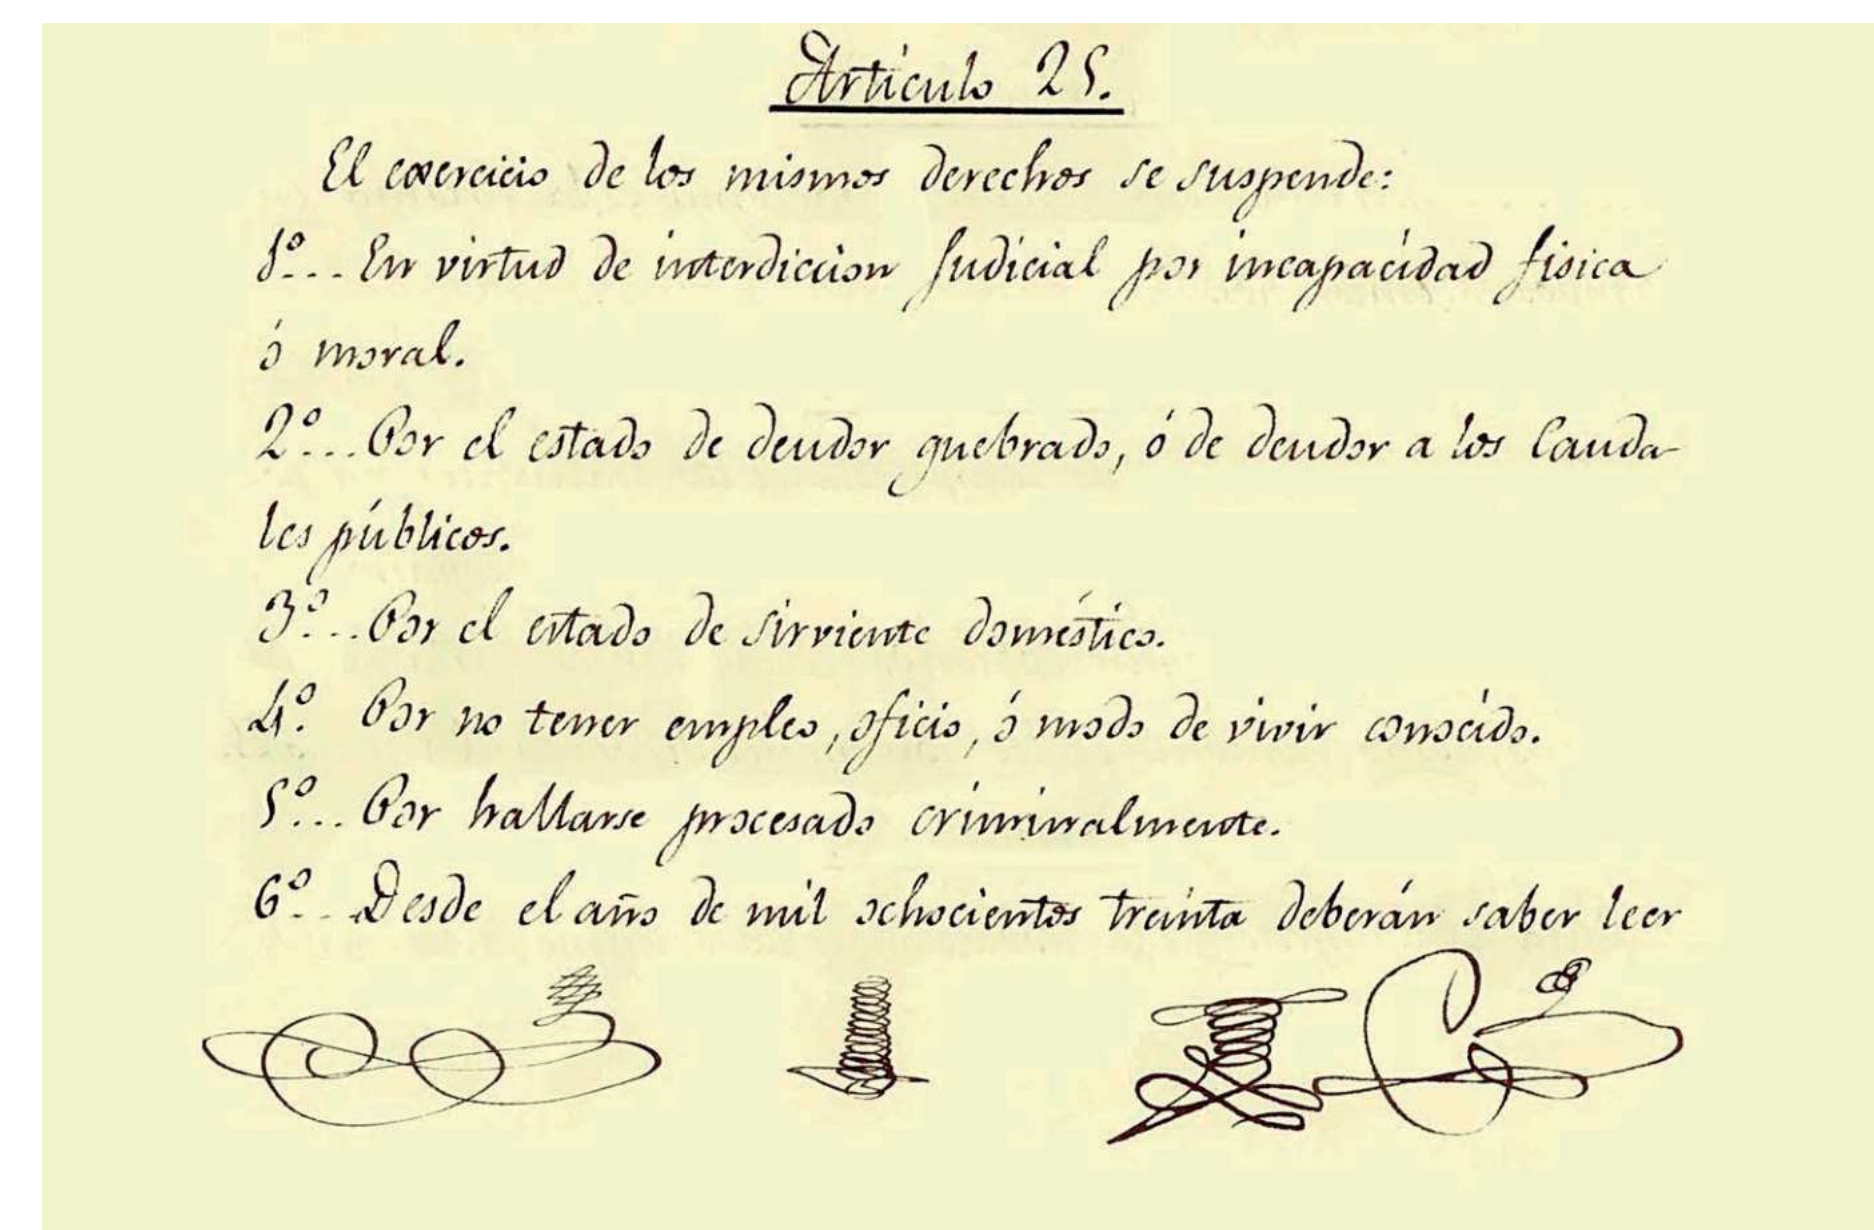 Artículo 25.
El exercicio de los mismos derechos se suspende:
1º... En virtud de interdiccion Judicial por incapacidad fisica
ó moral.
2º... Por el estado de deudor quebrado, ó de deudor a los Cauda-
les públicos.
3º... Por el estado de sirviente doméstico.
4º. Por no tener empleo, oficio, ó modo de vivir conocido.
5º... Por hallarse procesado criminalmente.
6º... Desde el año de mil ochocientos treinta deberán saber leer